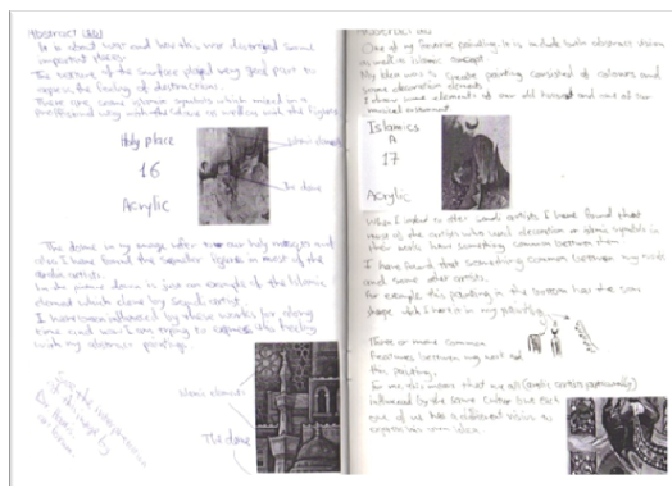 Abstract
It is about war and how this war distroyed some
important places.
The texture of the surface played very good part to
express the feeling of destructions.
There are some islamic symbols which mixed in a
proffissional way with the
Holy place
16
Acrylic
Islamic elements
The dome
The dome in my image refer to our holy mosques and
also I have found the similar figure in most of the
arabic artists.
In the picture down is just an example of the Islamic
element which done by Saudi artist.
I have been influenced by these works for along
time and now I am trying to express this feeling
with my abstract paintings.
Islamic elements
The dome
See the interpretation
of this image by
One of my favorite painting. It is include both abstract vision
as well as islamic concept.
My idea was to create painting consisted of colours and
some decoration elements
I draw some elements of our old
musical instrument
Islamics
A
17
Acrylic
When I refer to other saudi artists I have found that
most of the artists who used decoration or islamic symbols in
their works have something common between them
I have found that something common between my work
and some other artists.
For example this painting in the bottom has the same
shape which I have it in my painting.
common
features between my work and
this painting.
For me this mean that we all (arabic artists particularly)
influenced by the same culture but each
one of us has a different vision to
express his own idea.